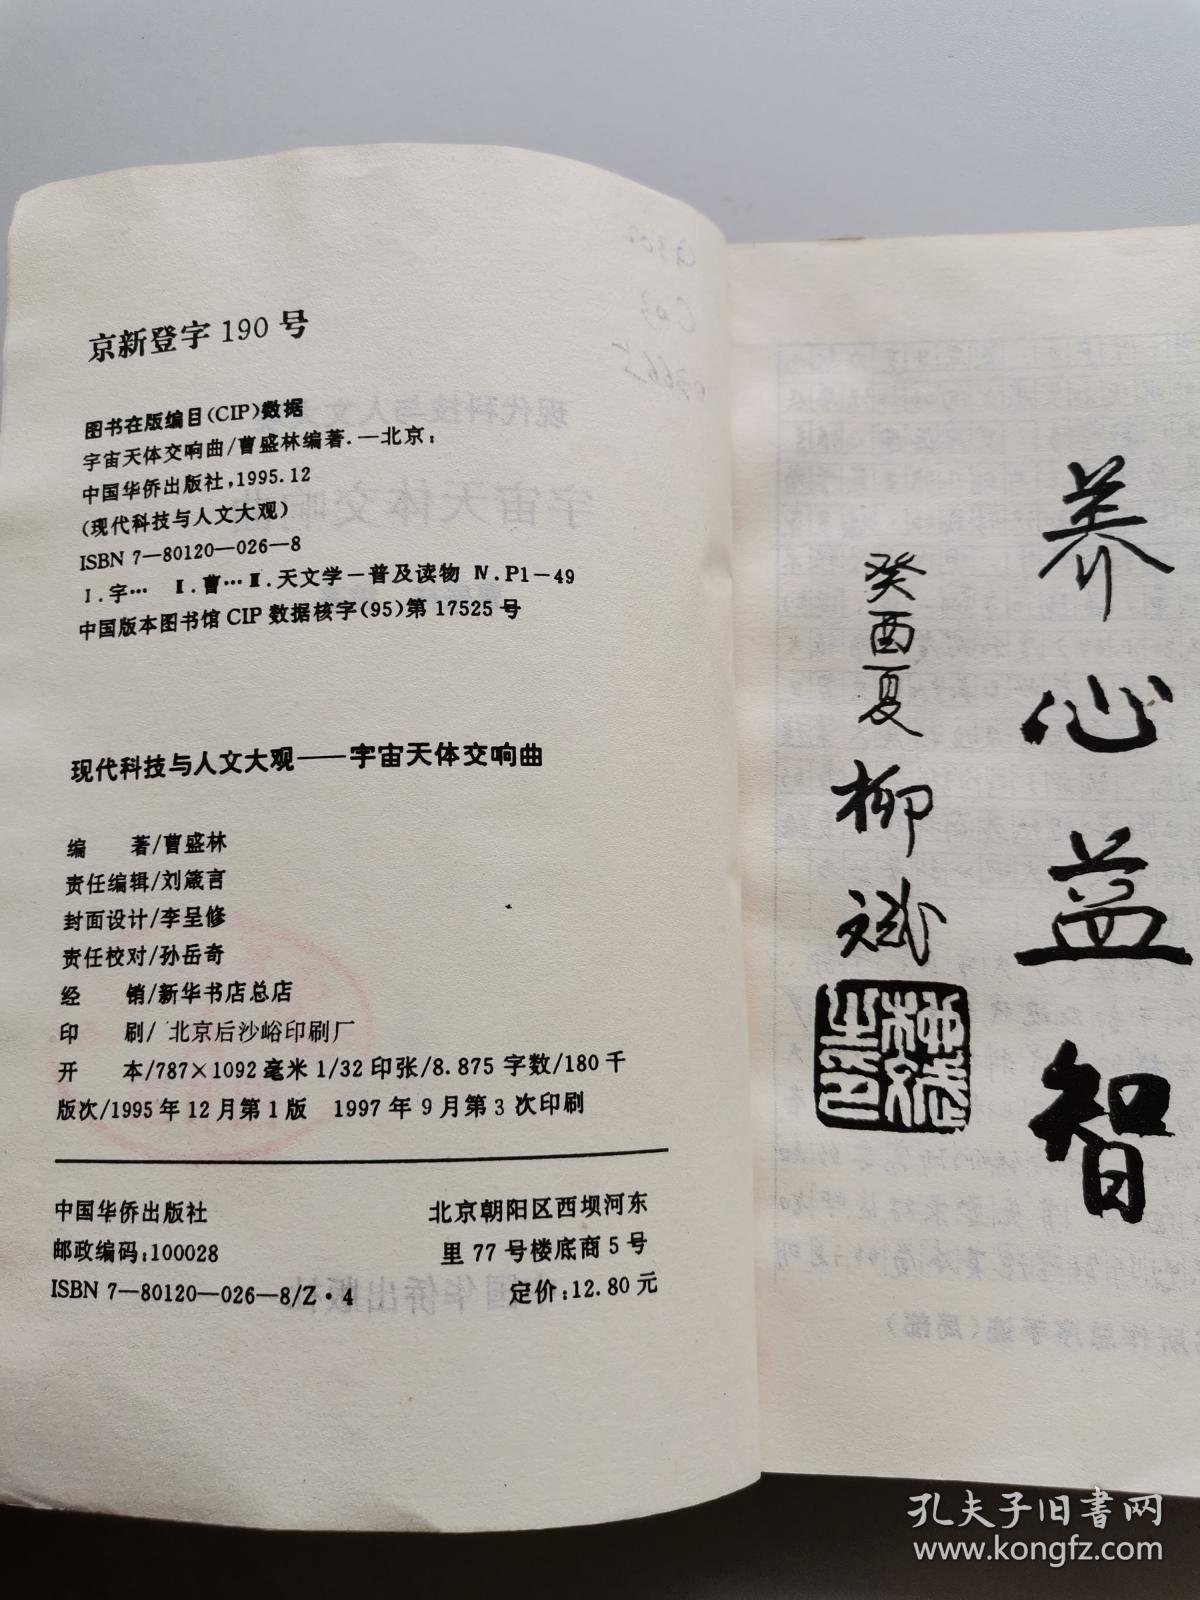 京新登字 190 号
图书在版编目(CIP)数据
宇宙天体交响曲/曹盛林编著.—北京:
中国华侨出版社,1995.12
(现代科技与人文大观)
ISBN 7—80120—026—8
Ⅰ.宇… Ⅱ.曹… Ⅲ.天文学－普及读物 Ⅳ.P1－49
中国版本图书馆 CIP 数据核字(95)第 17525 号
现代科技与人文大观——宇宙天体交响曲
编 著/曹盛林
责任编辑/刘箴言
封面设计/李呈修
责任校对/孙岳奇
经 销/新华书店总店
印 刷/北京后沙峪印刷厂
开 本/787×1092 毫米 1/32 印张/8.875 字数/180 千
版次/1995 年 12 月第 1 版 1997 年 9 月第 3 次印刷
中国华侨出版社
邮政编码:100028
ISBN 7—80120—026—8/Z·4
北京朝阳区西坝河东
里 77 号楼底商 5 号
定价:12.80 元
养心益智
癸酉夏
柳斌
孔夫子旧书网
www.kongfz.com